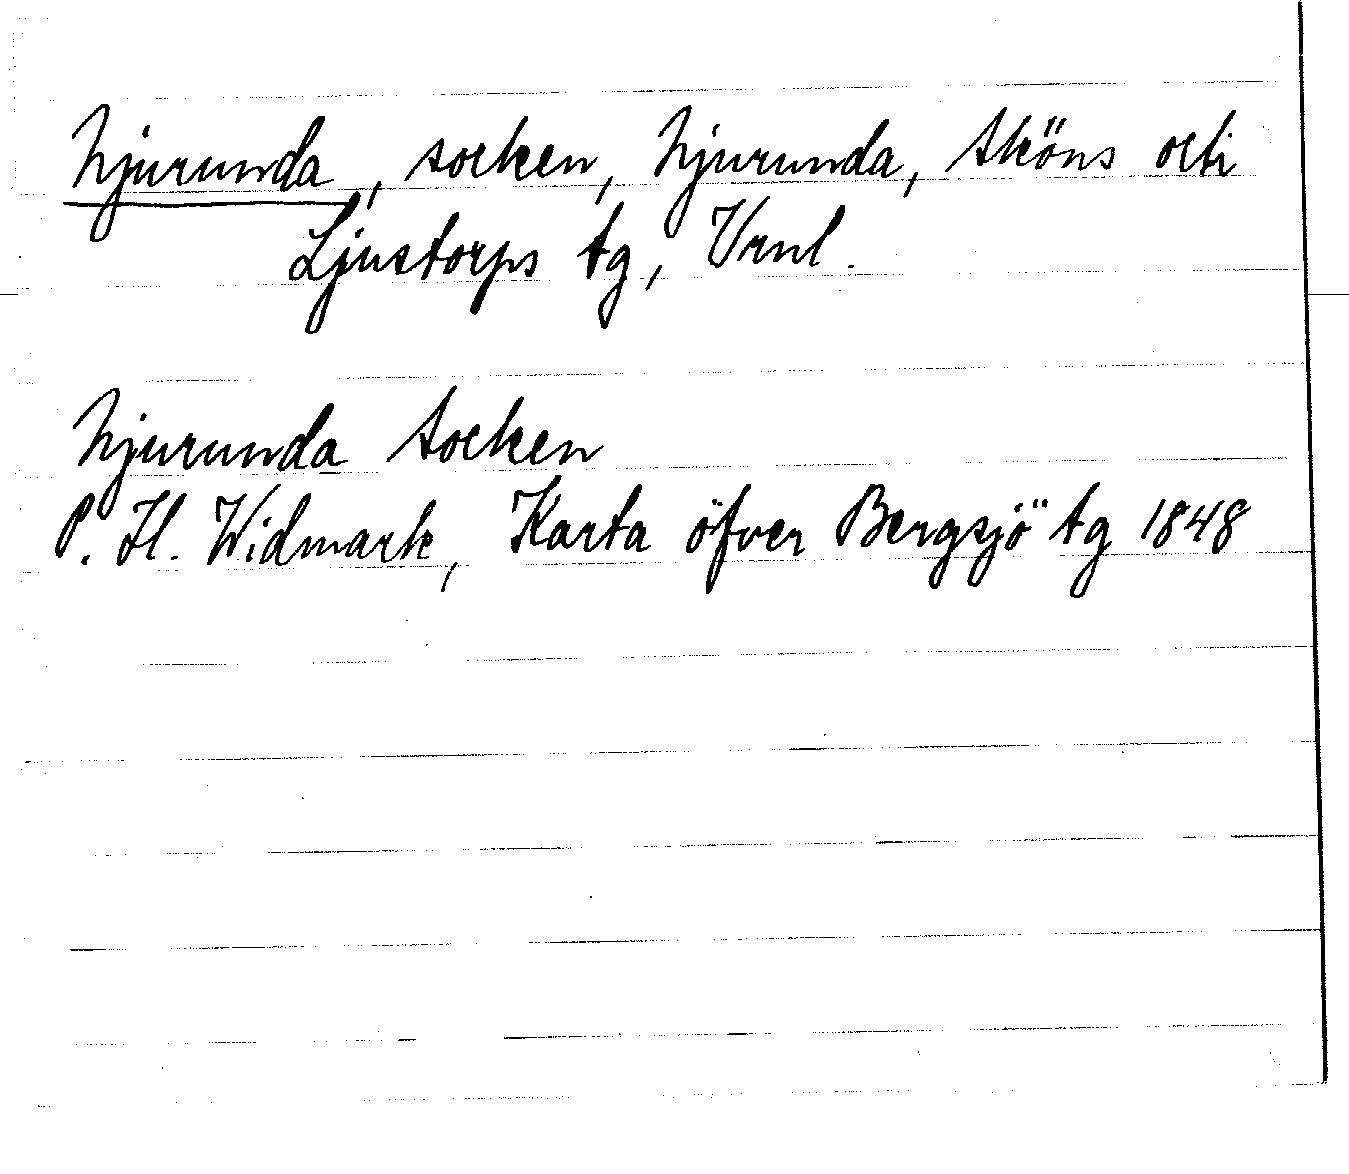 Njurunda, socken, Njurunda, Sköns och
Ljustorps tg, Vrnl.
Njurunda Socken
P. H. Widmark, Karta öfver Bergsjö tg 1848